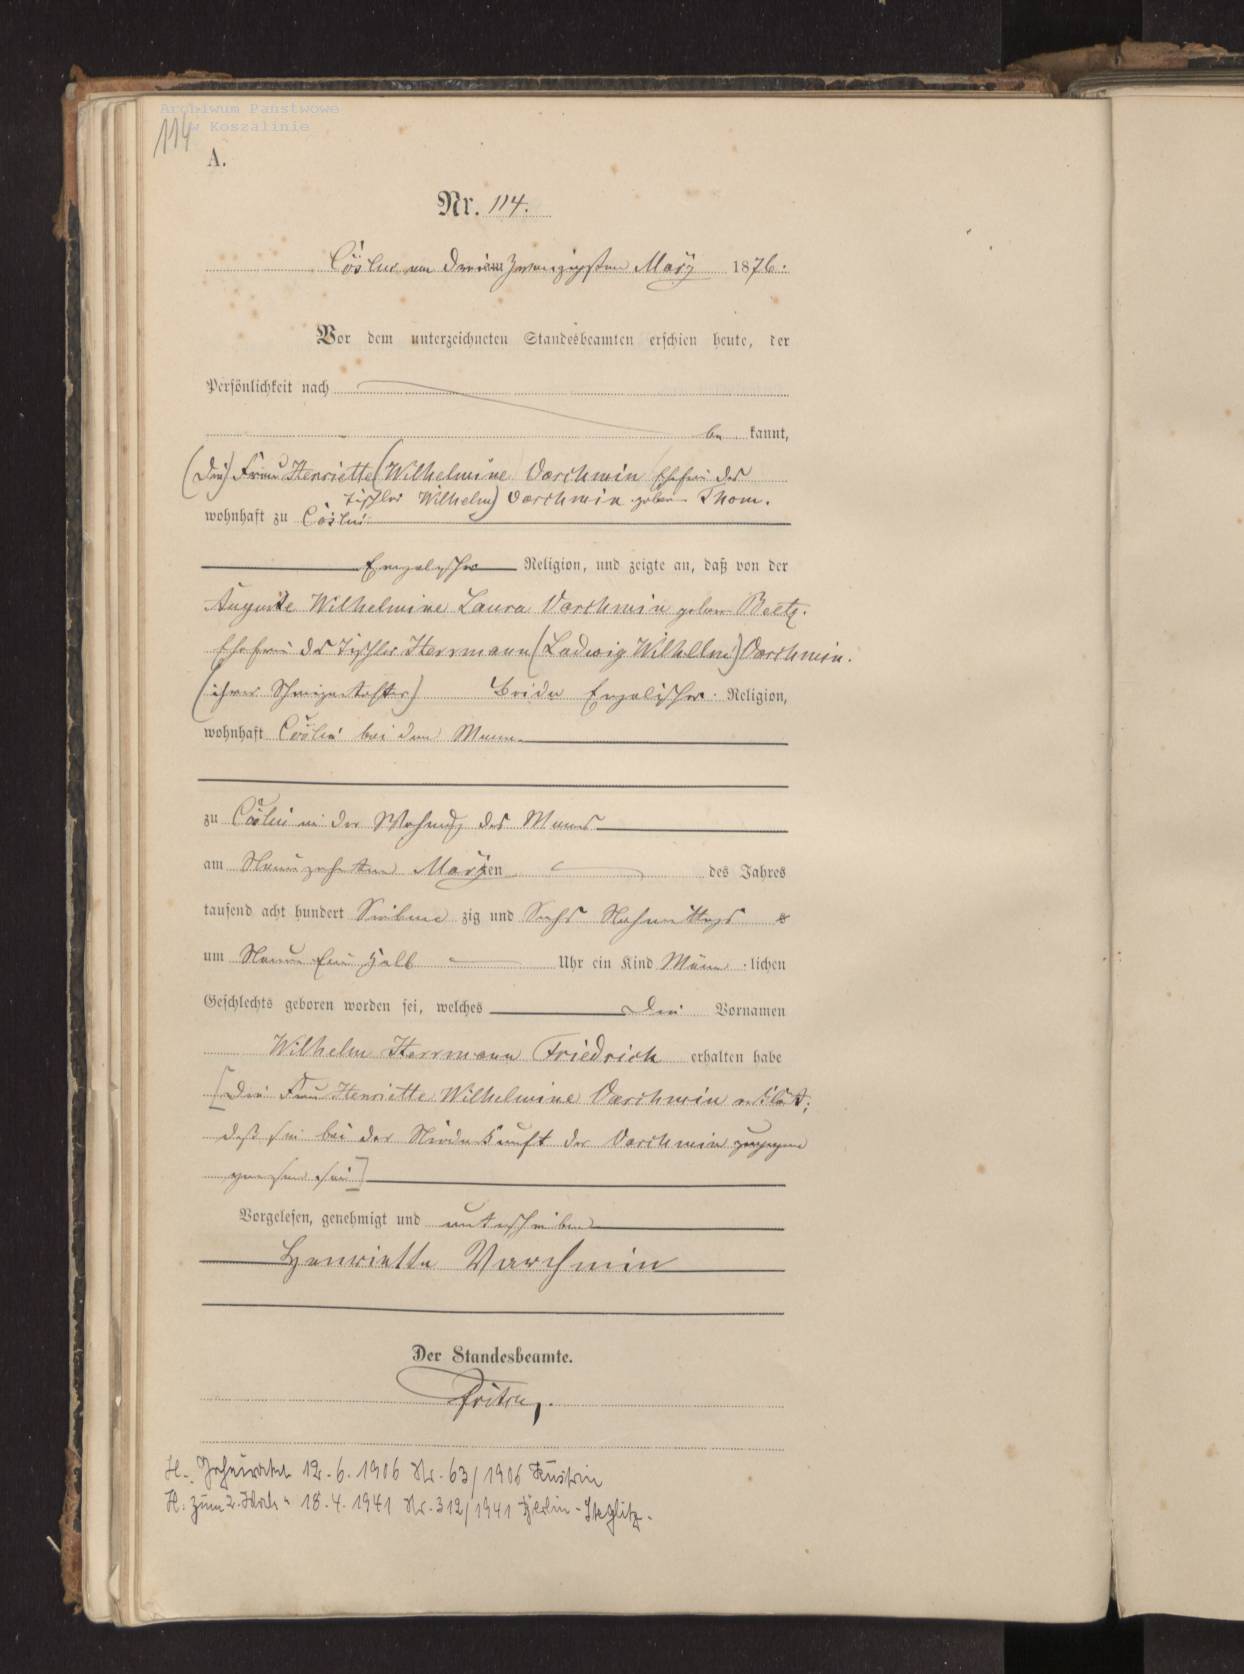 Archiwum Państwowe
w Koszalinie
114
A.
Nr. 114.
Cöslin am drei und zwanzigsten März 1876.
Vor dem unterzeichneten Standesbeamten erschien heute, der
Persönlichkeit nach
be kannt,
(die) Frau Henriette (Wilhelmine Varchmin Ehefrau des
Tischler Wilhelm) Varchmin geboren Thom.
wohnhaft zu Cöslin
Evangelischer Religion, und zeigte an, daß von der
Auguste Wilhelmine Laura Varchmin geboren Beetz.
Ehefrau des Tischler Herrmann (Ludwig Wilhelm) Varchmin.
(ihrer Schwiegertochter) Beide Evangelischer Religion,
wohnhaft Cöslin bei dem Manne
zu Cöslin in der Wohnung des Mannes
am Neunzehnten Märzen des Jahres
tausend acht hundert Sieben zig und Sechs Nachmittags
um Neun Ein halb Uhr ein Kind Männ lichen
Geschlechts geboren worden sei, welches die Vornamen
Wilhelm Herrmann Friedrich erhalten habe
[Die Frau Henriette Wilhelmine Varchmin erklärt;
daß sie bei der Niederkunft der Varchmin zugegen
gewesen sei]
Vorgelesen, genehmigt und unterschrieben
Henriette Varchmin
Der Standesbeamte.
H. Geheiratet 12.6.1906 Nr. 63/1906 Küstrin
H: zum 2. Male " 18.4.1941 Nr. 312/1941 Berlin-Steglitz.